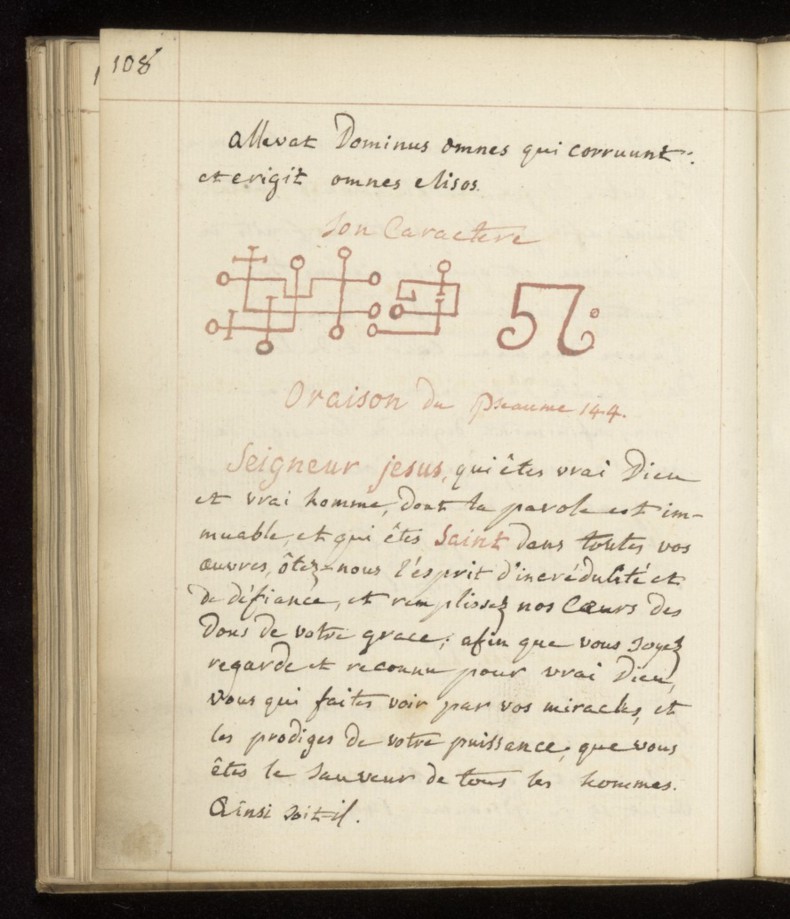 108
allevat Dominus omnes qui corruunt:
et erigit omnes elisos.
Son Caractere
Oraison du Pseaume 144.
Seigneur jesus, qui êtes vrai Dieu
et vrai homme, dont la parole est im-
muable, et qui êtes Saint dans toutes vos
œuvres, ôtez-nous l'esprit d'incrédulité et
de défiance, et remplissez nos Cœurs des
Dons de votre grace; afin que vous soyez
regardé et reconnu pour vrai Dieu,
vous qui faites voir par vos miracles, et
les prodiges de votre puissance, que vous
êtes le Sauveur de tous les hommes.
Ainsi soit-il.